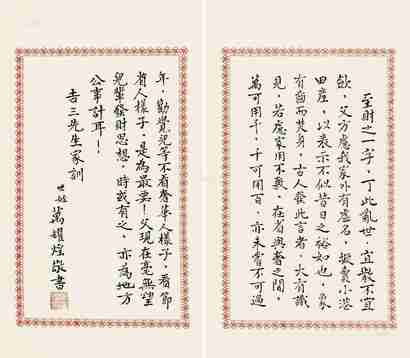 至財之一字，丁此亂世，宜散不宜
飲，父方慮我家外有虛名，擬賣小港
田產，以表示不似昔日之裕如也，象
有齒而焚身，古人發此言者，大有識
見，若慮家用不敷，在省與奢之間，
萬可用千，千可用百，亦未嘗不可過
年，勸覺兒等不看奢華人樣子，看節
省人樣子，是為最要！父現在毫無望
兒輩發財思想，時或有之，亦為地方
公事計耳！
吉三先生家訓
世姪
萬耀煌敬書